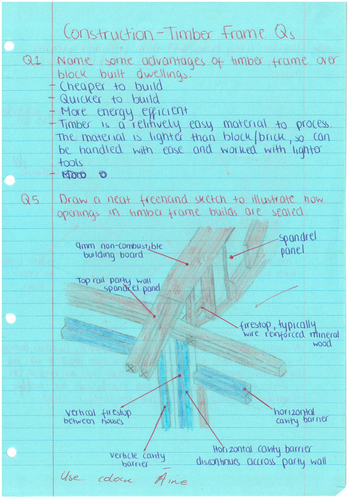 Construction - Timber Frame Qs
Q.1 Name some advantages of timber frame over
block built dwellings.
- Cheaper to build
- Quicker to build
- More energy efficient
- Timber is a relitively easy material to process.
The material is lighter than block/brick, so can
be handled with ease and worked with lighter
tools
Q5 Draw a neat freehand sketch to illustrate how
openings in timber frame builds are sealed.
9mm non-combustible
building board
spandrel
panel
Top rail party wall
spandrel panel
firestop, typically
wire reinforced mineral
wood
vertical firestop
between houses
horizontal
cavity barrier
verticle cavity
barrier
Horizontal cavity barrier
discontinues accross party wall
Use colour Áine